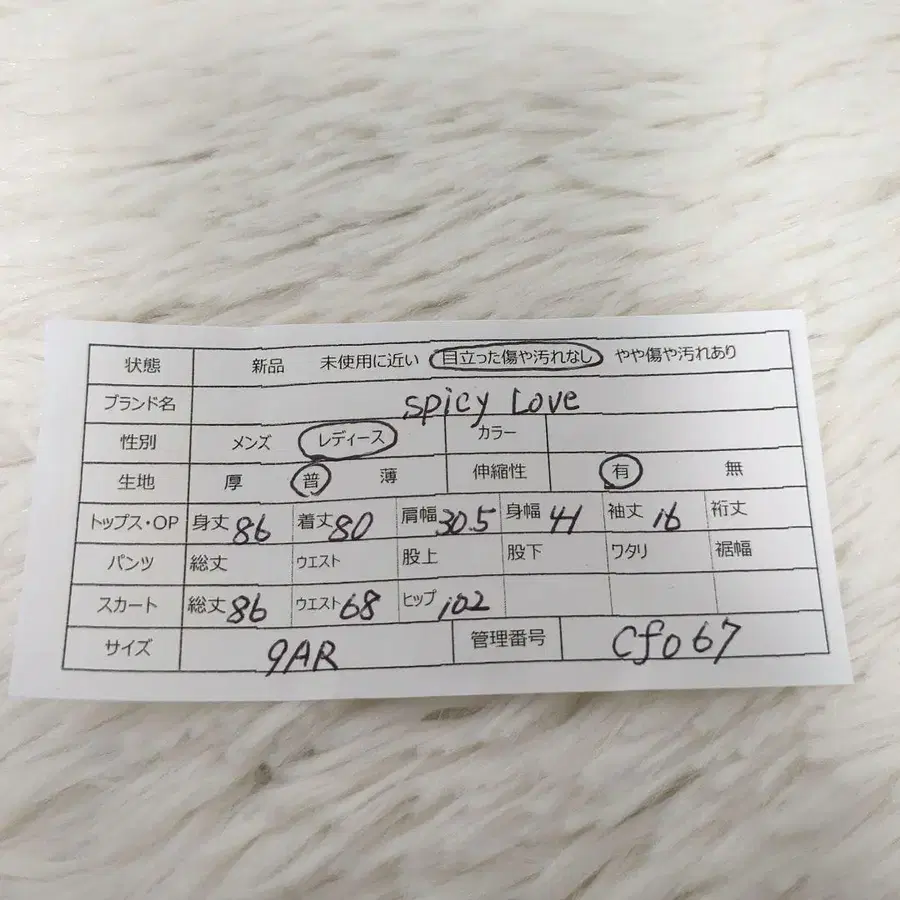 状態 新品 未使用に近い 目立った傷や汚れなし やや傷や汚れあり
ブランド名 spicy Love
性別 メンズ レディース カラー
生地 厚 普 薄 伸縮性 有 無
トップス・OP 身丈 86 着丈 80 肩幅 30.5 身幅 41 袖丈 16 裄丈
パンツ 総丈 ウエスト 股上 股下 ワタリ 裾幅
スカート 総丈 86 ウエスト 68 ヒップ 102
サイズ 9AR 管理番号 Cf067